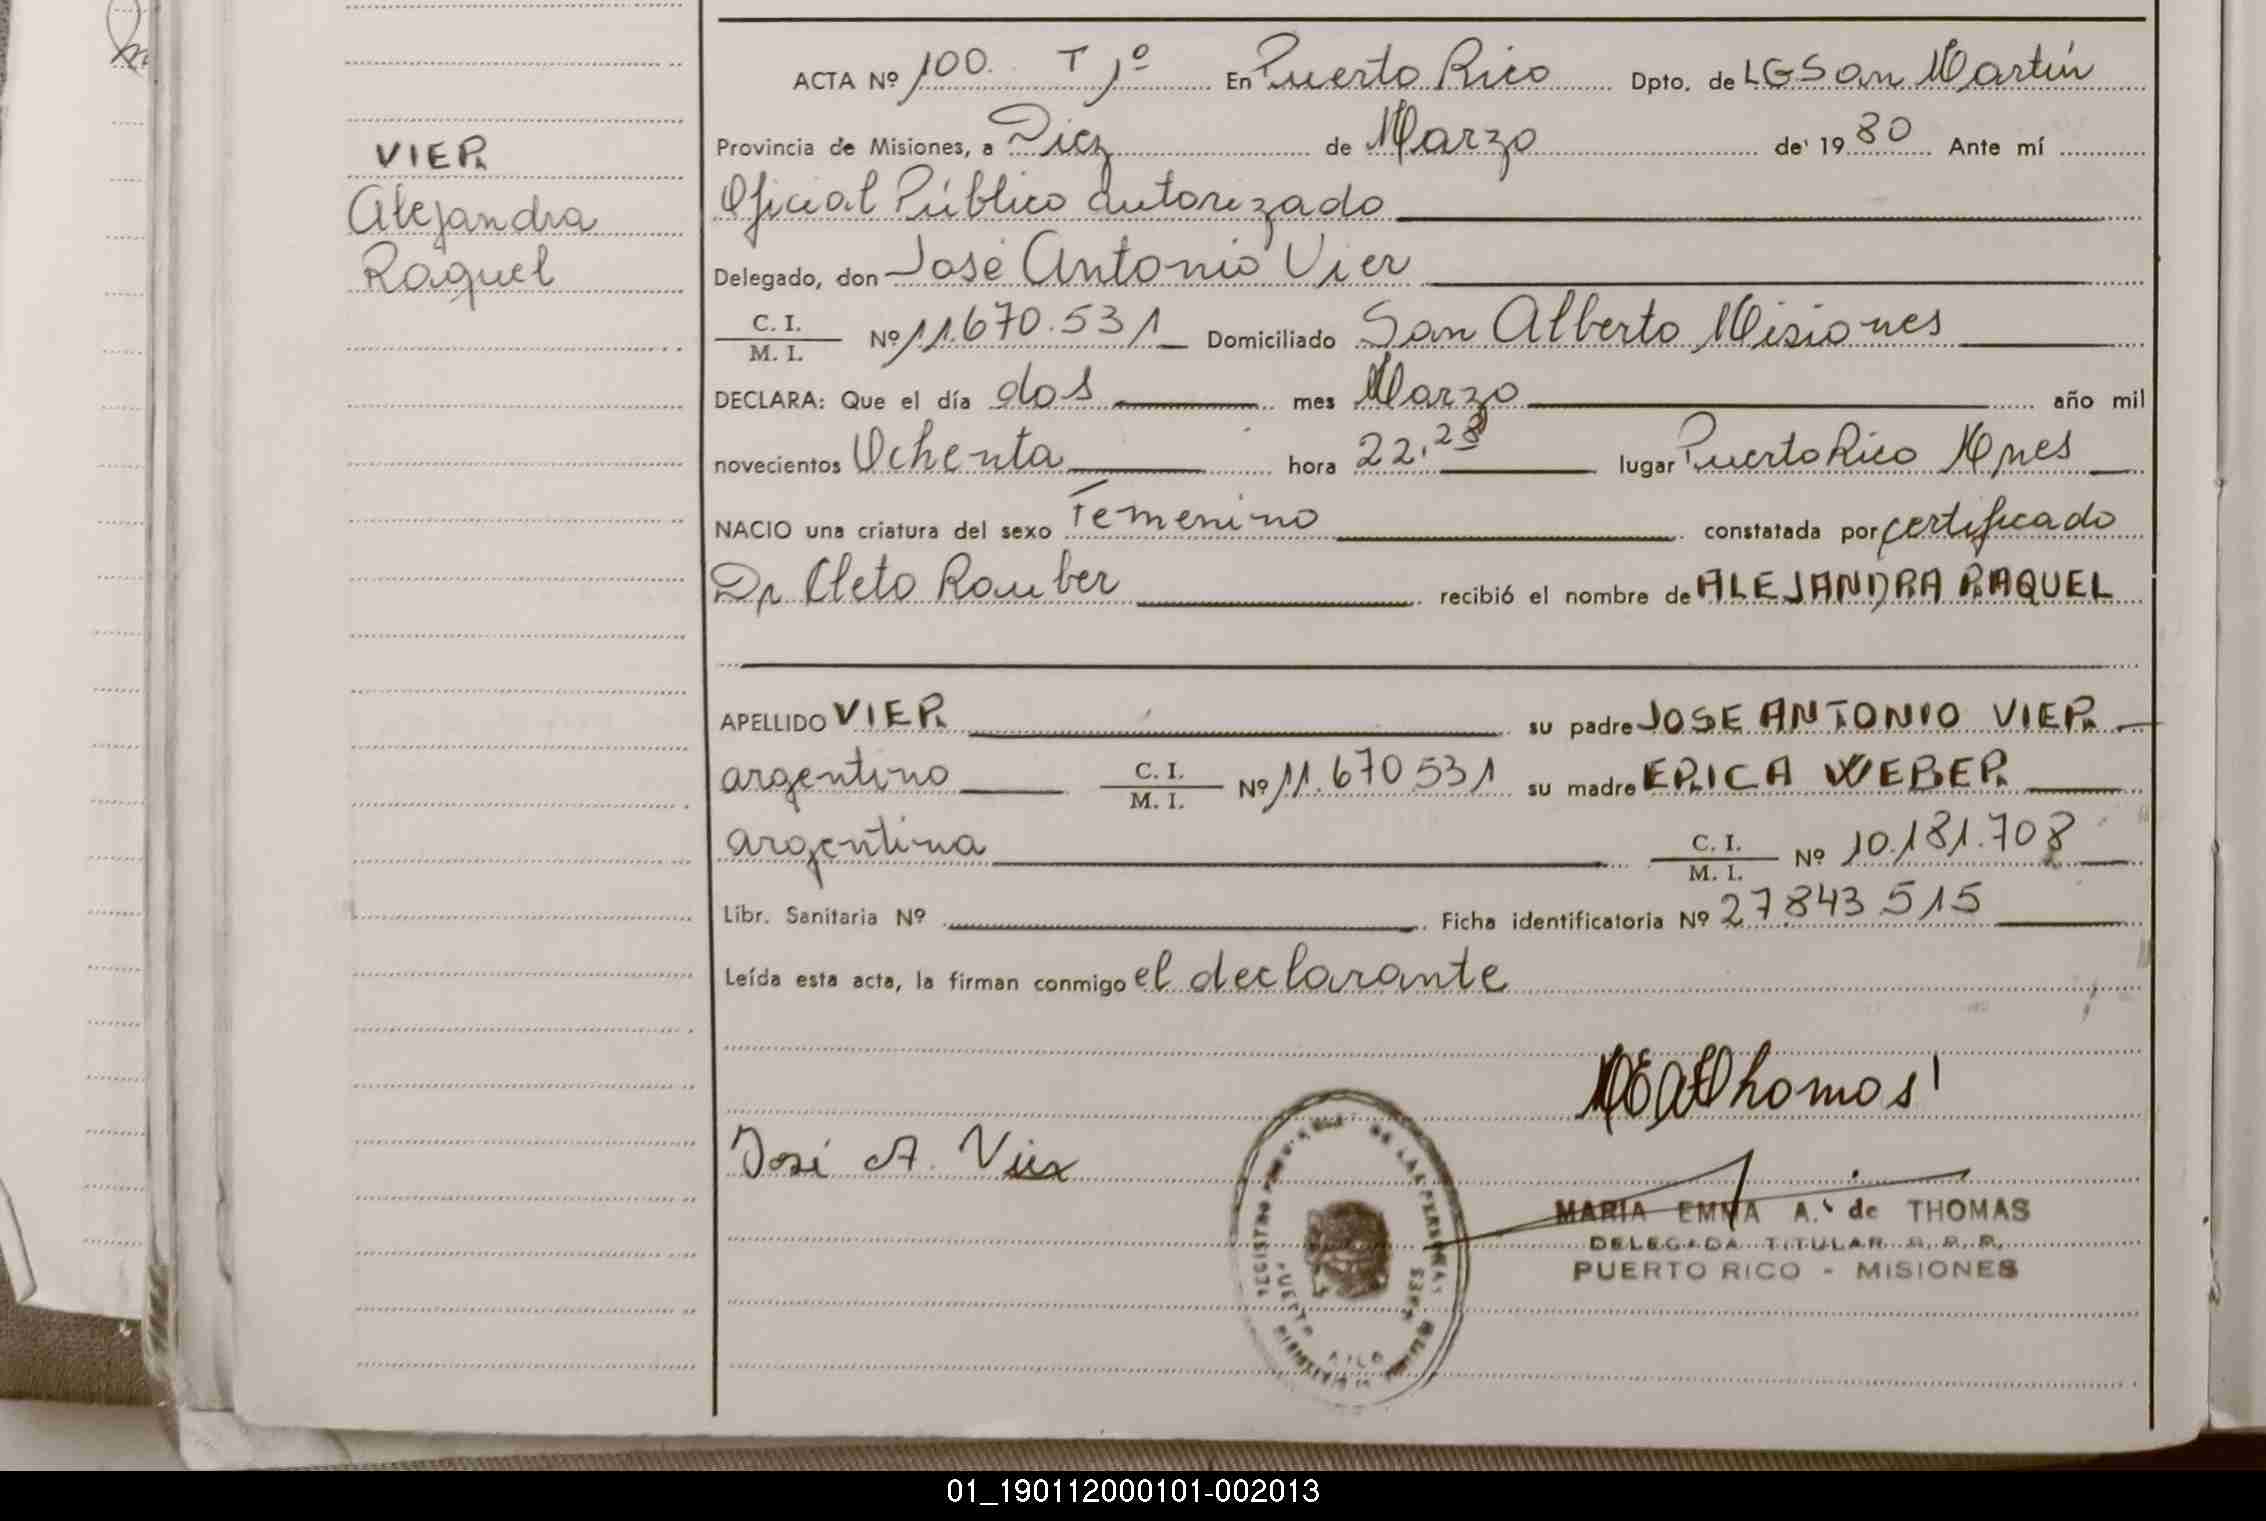 VIER
Alejandra
Raquel
ACTA Nº 100. T 1º En Puerto Rico Dpto. de LG San Martín
Provincia de Misiones, a Diez de Marzo de 19 80 Ante mí
Oficial Público autorizado
Delegado, don José Antonio Vier
C. I.
M. I. Nº 11.670.531 Domiciliado San Alberto Misiones
DECLARA: Que el día dos mes Marzo año mil
novecientos Ochenta hora 22,28 lugar Puerto Rico Mnes
NACIO una criatura del sexo Femenino constatada por certificado
Dr Cleto Rauber recibió el nombre de ALEJANDRA RAQUEL
APELLIDO VIER su padre JOSE ANTONIO VIER
argentino C. I.
M. I. Nº 11.670531 su madre ERICA WEBER
argentina C. I.
M. I. Nº 10.181.708
Libr. Sanitaria Nº Ficha identificatoria Nº 27843515
Leída esta acta, la firman conmigo el declarante
MEAThomas
José A. Vier
MARIA EMMA A. de THOMAS
DELEGADA TITULAR R. P. P.
PUERTO RICO - MISIONES
01_190112000101-002013